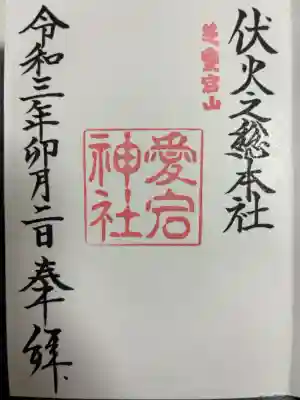 伏火之総本社
芝愛宕山
愛宕
神社
令和三年卯月二日奉拝